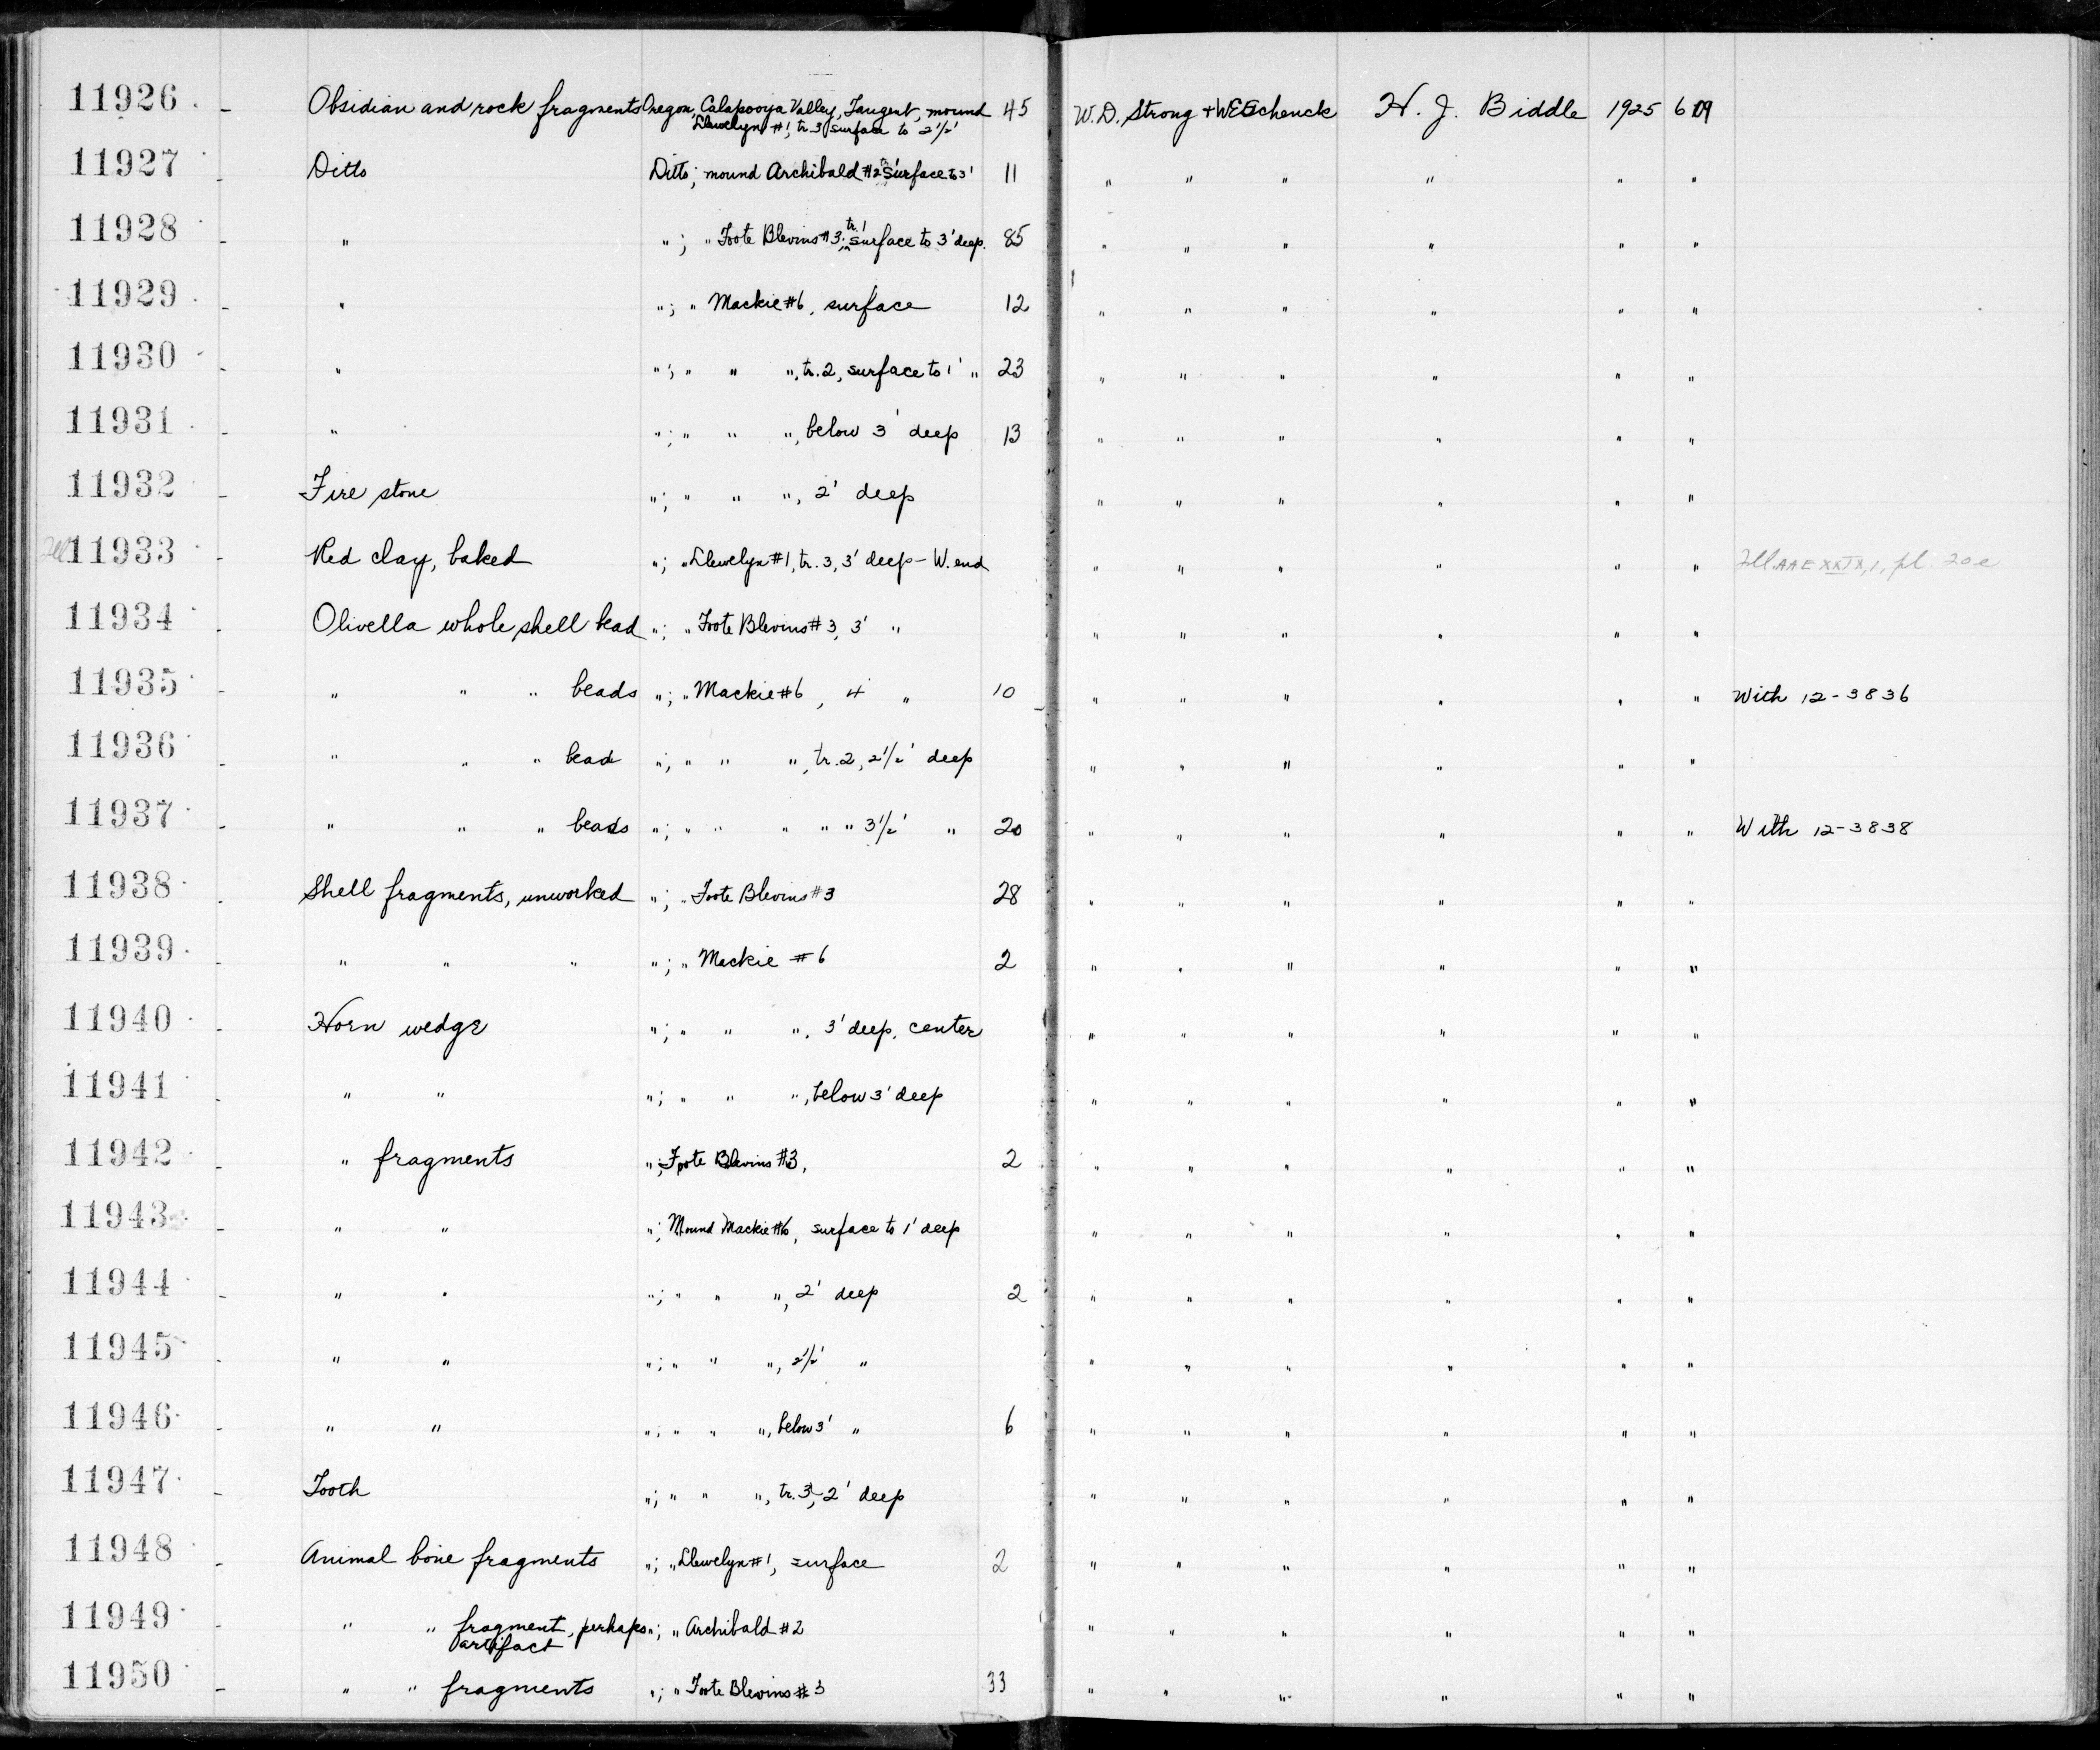 11926 - Obsidian and rock fragments Oregon, Calapooya Valley, Tangent, mound 45 W.D. Strong + WE Schenck H. J. Biddle 1925 609
Llewelyn #1, tr. 3 surface to 2 1/2'
11927 - Ditto Ditto; mound Archibald #2 surface to 3' 11 " " " " " "
11928 - " "; " Foote Blevins #3, tr. 1 surface to 3' deep. 85 " " " " " "
11929 - " "; " Mackie #6, surface 12 " " " " " "
11930 - " "; " " ", tr. 2, surface to 1' " 23 " " " " " "
11931 - " "; " " ", below 3' deep 13 " " " " " "
11932 - Fire stone "; " " ", 2' deep " " " " " "
Ill 11933 - Red clay, baked "; " Llewelyn #1, tr. 3, 3' deep - W. end " " " " " " Ill. AAE XXIX, 1, pl. 20e
11934 - Olivella whole shell bead "; " Foote Blevins #3, 3' " " " " " " "
11935 - " " " beads "; " Mackie #6, 4' " 10 " " " " " " With 12-3836
11936 - " " " bead "; " " ", tr. 2, 2 1/2' deep " " " " " "
11937 - " " " beads "; " " " " " 3 1/2' " 20 " " " " " " With 12-3838
11938 - Shell fragments, unworked "; " Foote Blevins #3 28 " " " " " "
11939 - " " " "; " Mackie #6 2 " " " " " "
11940 - Horn wedge "; " " ", 3' deep, center " " " " " "
11941 - " " "; " " ", below 3' deep " " " " " "
11942 - " fragments "; Foote Blevins #3, 2 " " " " " "
11943 - " " "; Mound Mackie #6, surface to 1' deep " " " " " "
11944 - " " "; " " ", 2' deep 2 " " " " " "
11945 - " " "; " " ", 2 1/2' " " " " " " "
11946 - " " "; " " ", below 3' " 6 " " " " " "
11947 - Tooth "; " " ", tr. 3, 2' deep " " " " " "
11948 - Animal bone fragments "; " Llewelyn #1, surface 2 " " " " " "
11949 - " " fragment, perhaps "; " Archibald #2 " " " " " "
artifact
11950 - " " fragments "; " Foote Blevins #3 33 " " " " " "